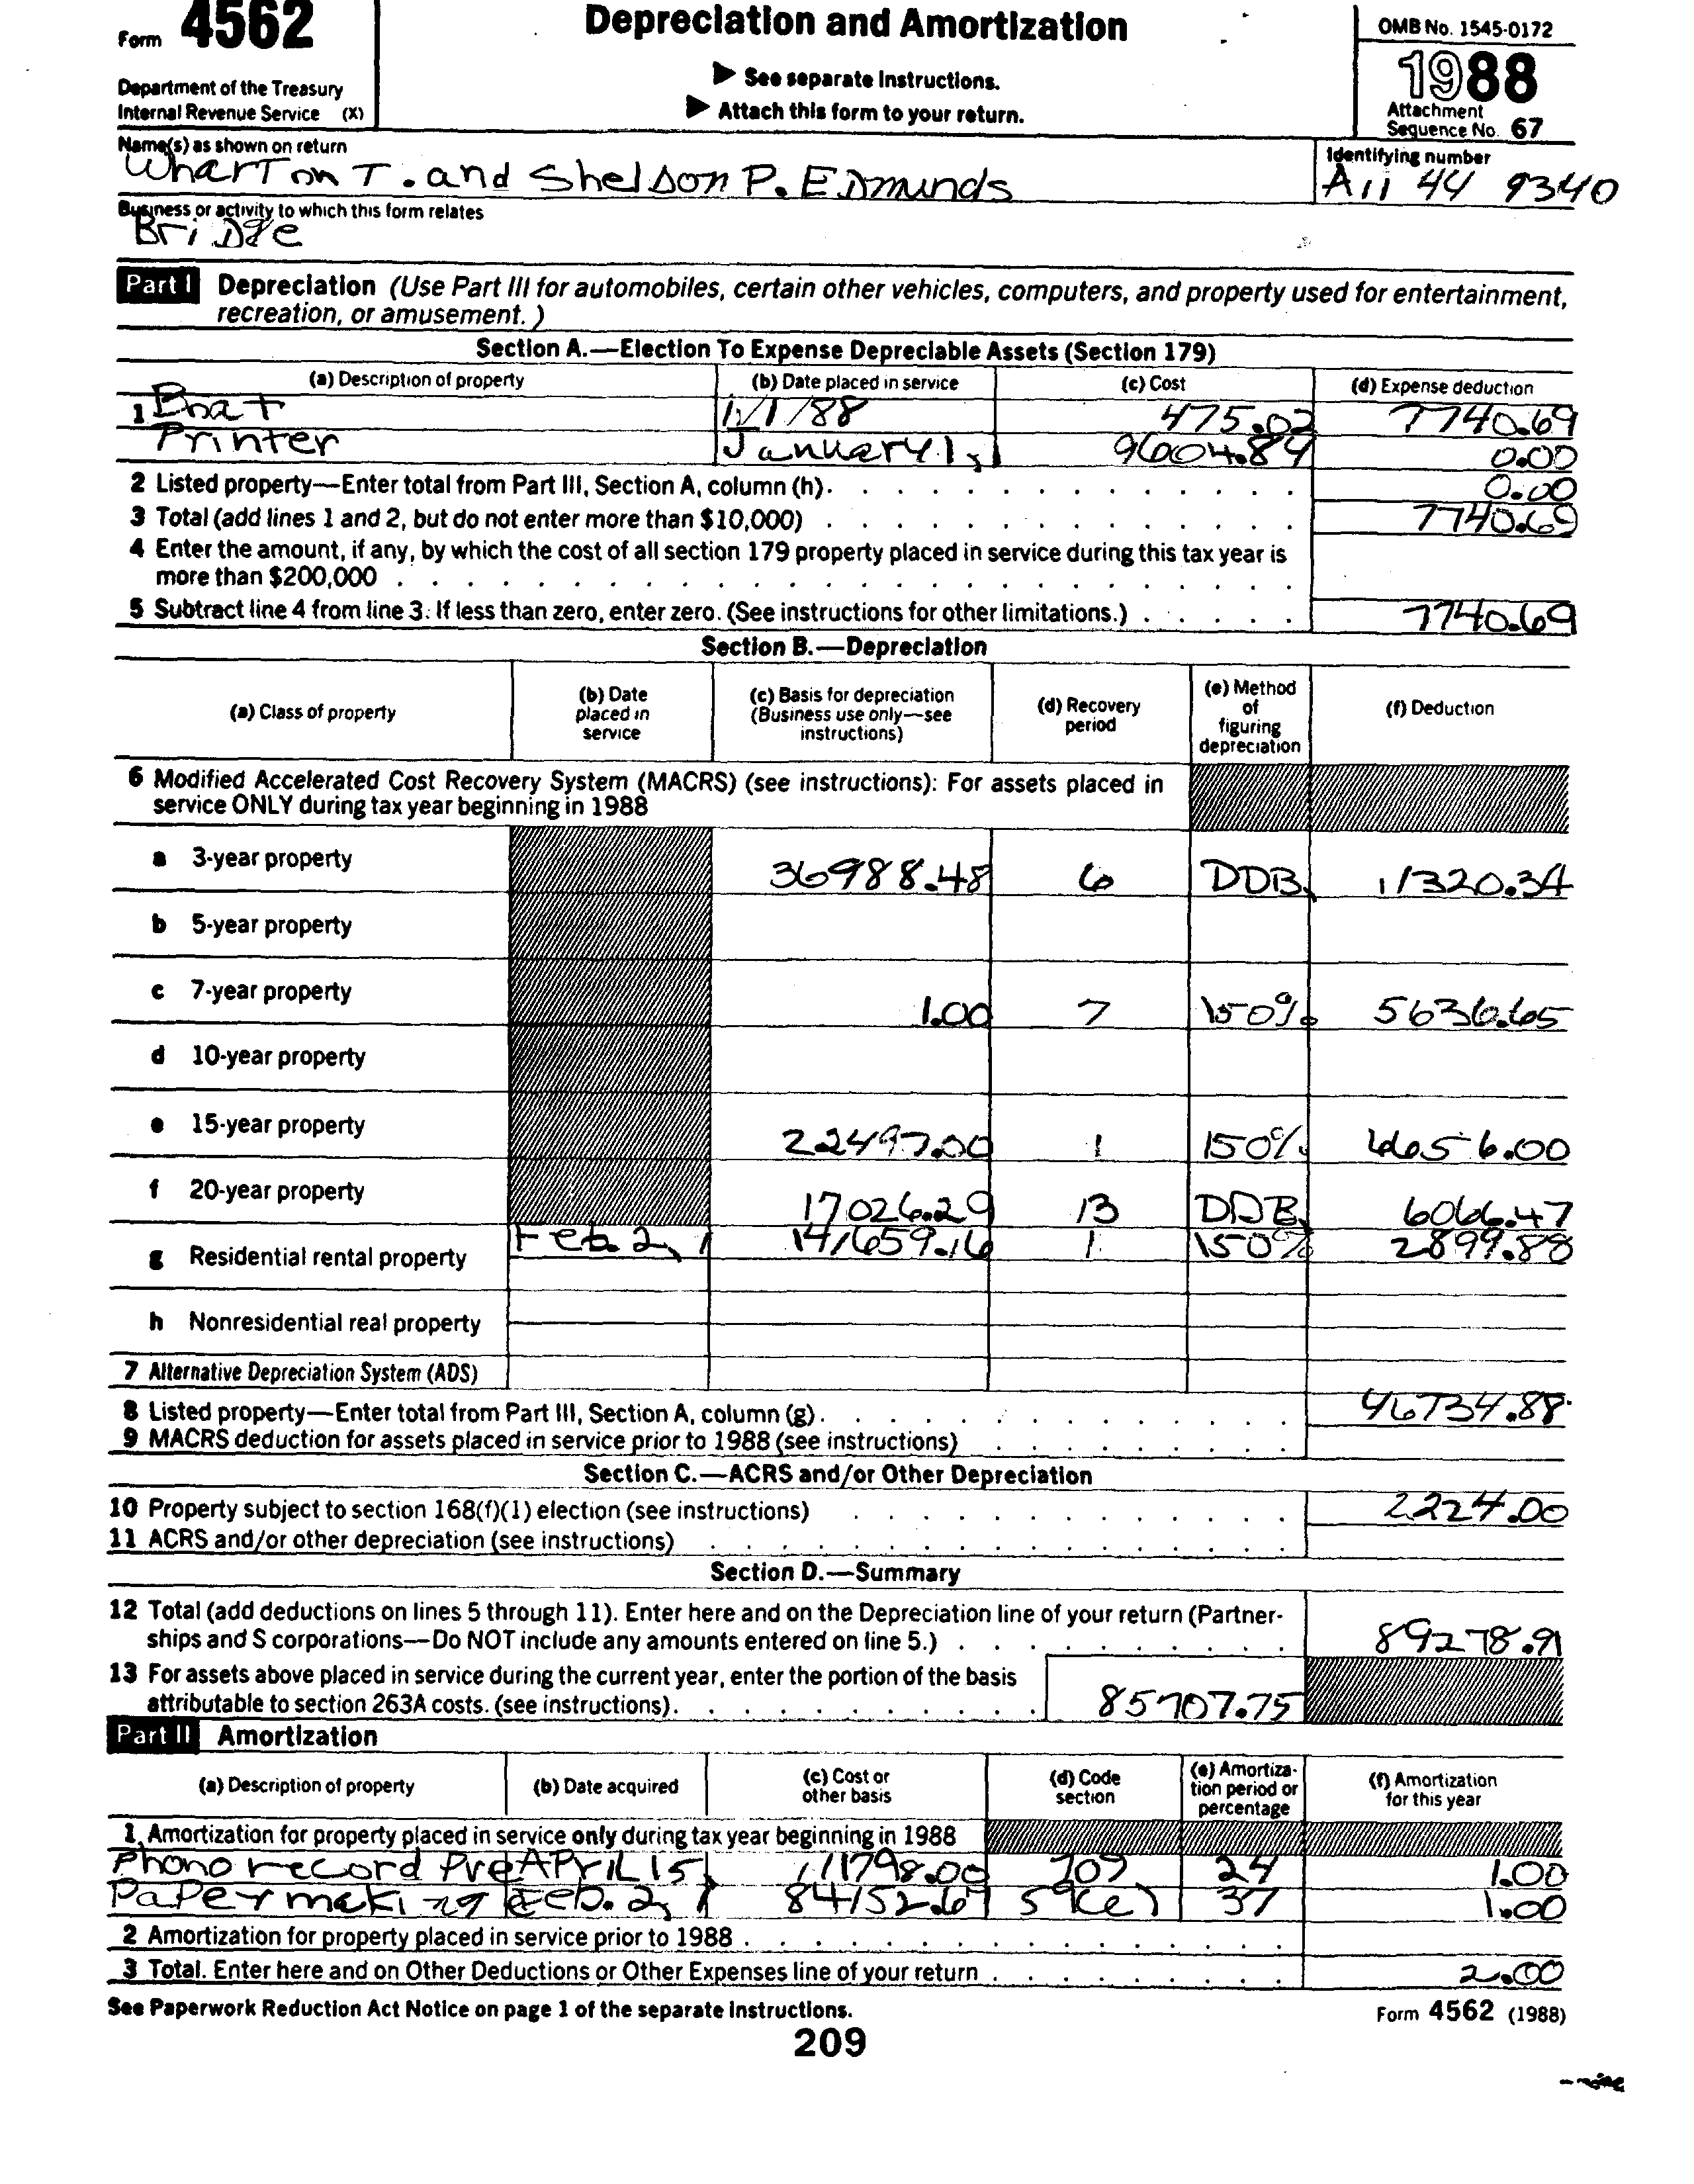 Form 4562
Depreciation and Amortization
OMB No. 1545-0172
1988
▶ See separate Instructions.
▶ Attach this form to your return.
Department of the Treasury
Internal Revenue Service (X)
Attachment
Sequence No. 67
Name(s) as shown on return
Identifying number
Wharton T. and Sheldon P. Edmunds
A11 44 9340
Business or activity to which this form relates
Bridge
Part I Depreciation (Use Part III for automobiles, certain other vehicles, computers, and property used for entertainment,
recreation, or amusement.)
Section A.—Election To Expense Depreciable Assets (Section 179)
(a) Description of property (b) Date placed in service (c) Cost (d) Expense deduction
1 Boat 1/1/88 475.02 7740.69
Printer January 1, 9604.84 0.00
2 Listed property—Enter total from Part III, Section A, column (h). 0.00
3 Total (add lines 1 and 2, but do not enter more than $10,000) 7740.69
4 Enter the amount, if any, by which the cost of all section 179 property placed in service during this tax year is
more than $200,000
5 Subtract line 4 from line 3. If less than zero, enter zero. (See instructions for other limitations.) 7740.69
Section B.—Depreciation
(a) Class of property (b) Date placed in service (c) Basis for depreciation (Business use only—see instructions) (d) Recovery period (e) Method of figuring depreciation (f) Deduction
6 Modified Accelerated Cost Recovery System (MACRS) (see instructions): For assets placed in
service ONLY during tax year beginning in 1988
a 3-year property 36988.48 6 DDB, 11320.34
b 5-year property
c 7-year property 1.00 7 150% 5636.65
d 10-year property
e 15-year property 22497.00 1 150% 6656.00
f 20-year property 17026.29 13 DDB, 6066.47
g Residential rental property Feb. 2, 1 141659.16 1 150% 2899.88
h Nonresidential real property
7 Alternative Depreciation System (ADS)
8 Listed property—Enter total from Part III, Section A, column (g). 46734.88
9 MACRS deduction for assets placed in service prior to 1988 (see instructions)
Section C.—ACRS and/or Other Depreciation
10 Property subject to section 168(f)(1) election (see instructions) 2224.00
11 ACRS and/or other depreciation (see instructions)
Section D.—Summary
12 Total (add deductions on lines 5 through 11). Enter here and on the Depreciation line of your return (Partner-
ships and S corporations—Do NOT include any amounts entered on line 5.) 89278.91
13 For assets above placed in service during the current year, enter the portion of the basis
attributable to section 263A costs. (see instructions). 85707.75
Part II Amortization
(a) Description of property (b) Date acquired (c) Cost or other basis (d) Code section (e) Amortization period or percentage (f) Amortization for this year
1 Amortization for property placed in service only during tax year beginning in 1988
Phonorecord Pre APRIL 15, 111798.00 709 24 1.00
Papermaking Feb. 2, 1 84152.67 59(e) 37 1.00
2 Amortization for property placed in service prior to 1988
3 Total. Enter here and on Other Deductions or Other Expenses line of your return 2.00
See Paperwork Reduction Act Notice on page 1 of the separate Instructions.
Form 4562 (1988)
209